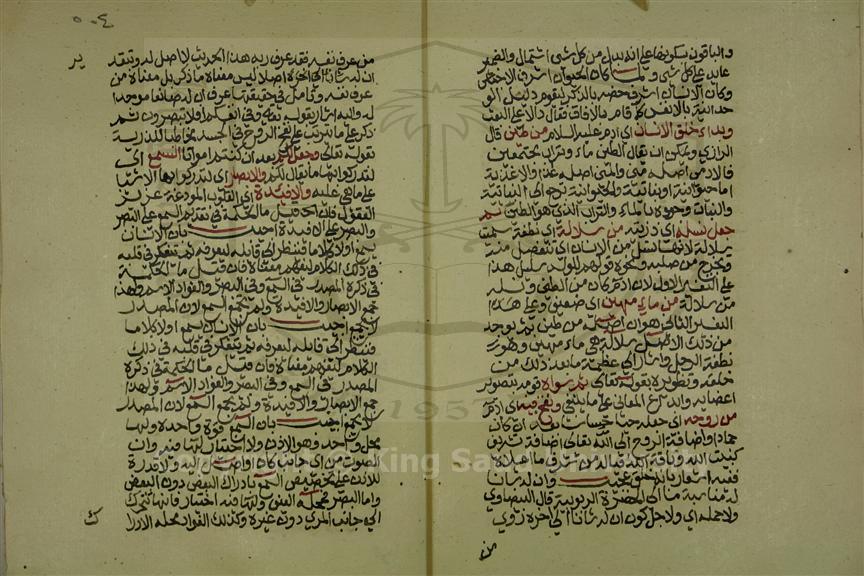 والباقون بسكونها على انه بدل من كل شيء اشتمال والضمير
عايد على كل شيء ولما كان الحيوان اشرف الاجناس
وكان الانسان اشرفه خصه بالذكر ليقوم دليل الو
حدانية بالانفس كما قام بالافاق فقال دالا على البعث
وبدا خلق الانسان اي ادم عليه السلام من طين قال
الرازي ويمكن ان يقال الطين ماء وتراب مجتمعان
فالادمي اصله مني والمني اصله غذا والاغذية
اما حيوانية او نباتية والحيوانية ترجع الى النباتية
والنبات وجوده بالماء والتراب الذي هو الطين ثم
جعل نسله اي ذريته من سلالة اي نطفة سميت
سلالة لانها تنسل من الانسان اي تنفصل منه
وتخرج من صلبه ونحوه قولهم للولد سليل هذا
على التفسير الاول لان ادم كان من الطين ونسله
من سلالة من ماء مهين اي ضعيف وعلى هذا
التفسير الثاني هو ان اصله من طين ثم يوجد
من ذلك الاصل سلالة هي ماء مهين وهو
نطفة الرجل واشار الى عظمة ما بعد ذلك من
خلقه وتطويره بقوله تعالى ثم سواه قومه بتصوير
اعضايه على ما ينبغي ونفخ فيه اي ادم
من روحه اي جعله حيا حساسا بعد ان كان
جمادا واضافة الروح الى الله تعالى اضافة تشريف
كبيت الله وناقة الله
وان له شانا
له مناسبة ما الى الحضرة الربوبية قال البيضاوي
ولاجله اي ولاجل كون ان له شانا الى اخره روي
من
٥٠٤
من عرف نفسه فقد عرف ربه هذا الحديث لا اصل له وبتقد
ير
ان له شانا الى اخره اصلا ليس معناه ما ذكر بل معناه من
عرف نفسه وتامل في حقيقتها عرف ان له صانعا موجدا
له واليه اشار بقوله تعالى وفي انفسكم افلا تبصرون ثم
ذكر على ما يترتب على نفخ الروح في الجسد مخاطبا للذرية
بقوله تعالى وجعل لكم بعد ان كنتم امواتا السمع اي
لتدركوا به ما يقال لكم والابصار اي لتدركوا بها الاشيا
على ما هي عليه والافيدة اي القلوب المودعة غرايز
العقول فان قيل ما الحكمة في تقديم السمع على البصر
والبصر على الافيدة اجيب بان الانسان
يسمع اولا كلاما فينظر الى قايله ليعرفه ثم يتفكر في قلبه
في ذلك الكلام ليفهم معناه فان قيل ما الحكمة
في ذكره المصدر في السمع وفي البصر والفواد الاسم ولهذا
جمع الابصار والافيدة ولم يجمع السمع لان المصدر
لا يجمع اجيب بان الانسان يسمع اولا كلاما
فينظر الى قايله ليعرفه ثم يتفكر في قلبه في ذلك
الكلام ليفهم معناه فان قيل ما الحكمة في ذكره
المصدر في السمع وفي البصر والفواد الاسم ولهذا
جمع الابصار والافيدة ولم يجمع السمع لان المصدر
لا يجمع اجيب بان السمع قوة واحدة ولها
محل واحد وهو الاذن ولا اختيار لها فيه وان
الصوت من اي جانب كان واصل اليه ولا قدرة
للاذن على تخصيص السمع بادراك البعض دون البعض
واما البصر فمحله العين ولها فيه اختيار فانها تتحرك
الى جانب المرئي دون غيره وكذلك الفواد محله الادرا
ك
Copyright © King Saud University
1957